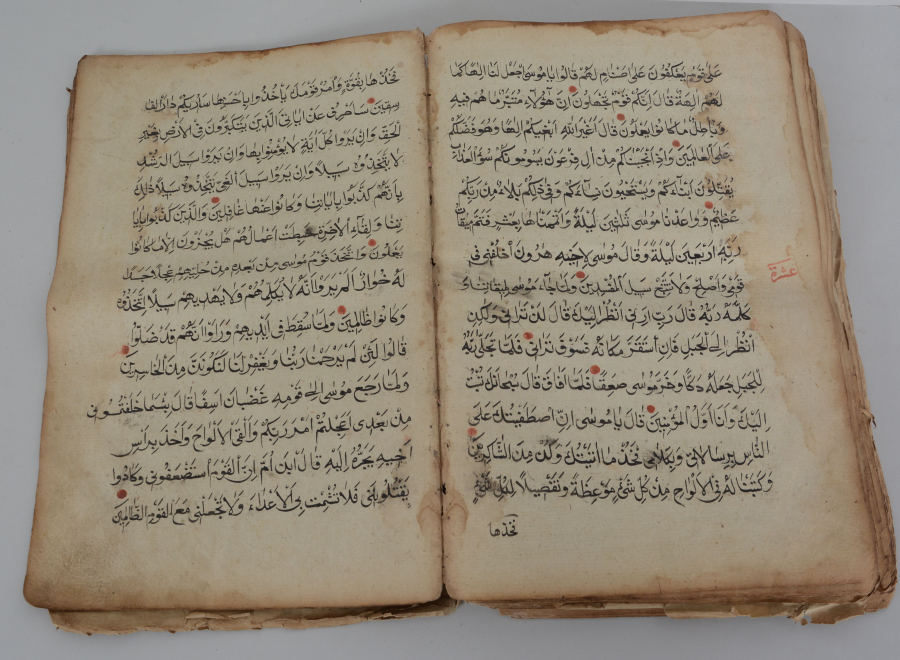 على قوم يعكفون على اصنام لهم قالوا ياموسى اجعل لنا الها كما
لهم الهة قال انكم قوم تجهلون ان هؤلاء متبر ما هم فيه
وباطل ما كانوا يعملون قال اغير الله ابغيكم الها وهو فضلكم
على العالمين واذ انجيناكم من ال فرعون يسومونكم سوء العذاب
يقتلون ابناءكم ويستحيون نساءكم وفي ذلكم بلاء من ربكم
عظيم وواعدنا موسى ثلثين ليلة واتممناها بعشر فتم ميقات
ربه اربعين ليلة وقال موسى لاخيه هرون اخلفني في
عشرة
قومي واصلح ولا تتبع سبيل المفسدين ولما جاء موسى لميقاتنا و
كلمه ربه قال رب ارني انظر اليك قال لن تراني ولكن
انظر الى الجبل فان استقر مكانه فسوف تراني فلما تجلى ربه
للجبل جعله دكا وخر موسى صعقا فلما افاق قال سبحانك تبت
اليك وانا اول المؤمنين قال ياموسى اني اصطفيتك على
الناس برسالاتي وبكلامي فخذ ما اتيتك وكن من الشاكرين
وكتبنا له في الالواح من كل شيء موعظة وتفصيلا لكل شيء
فخذها
فخذها بقوة وأمر قومك يأخذوا باحسنها سأريكم دار الفا
سقين ساصرف عن اياتي الذين يتكبرون في الارض بغير
الحق وان يروا كل اية لا يؤمنوا بها وان يروا سبيل الرشد
لا يتخذوه سبيلا وان يروا سبيل الغي يتخذوه سبيلا ذلك
بانهم كذبوا باياتنا وكانوا عنها غافلين والذين كذبوا بايا
تنا ولقاء الاخرة حبطت اعمالهم هل يجزون الا ما كانوا
يعملون واتخذ قوم موسى من بعده من حليهم عجلا جسدا
له خوار الم يروا انه لا يكلمهم ولا يهديهم سبيلا اتخذوه
وكانوا ظالمين ولما سقط في ايديهم وراوا انهم قد ضلوا
قالوا لئن لم يرحمنا ربنا ويغفر لنا لنكونن من الخاسرين
ولما رجع موسى الى قومه غضبان اسفا قال بئسما خلفتموني
من بعدي اعجلتم امر ربكم والقى الالواح واخذ براس
اخيه يجره اليه قال ابن ام ان القوم استضعفوني وكادوا
يقتلونني فلا تشمت بي الاعداء ولا تجعلني مع القوم الظالمين